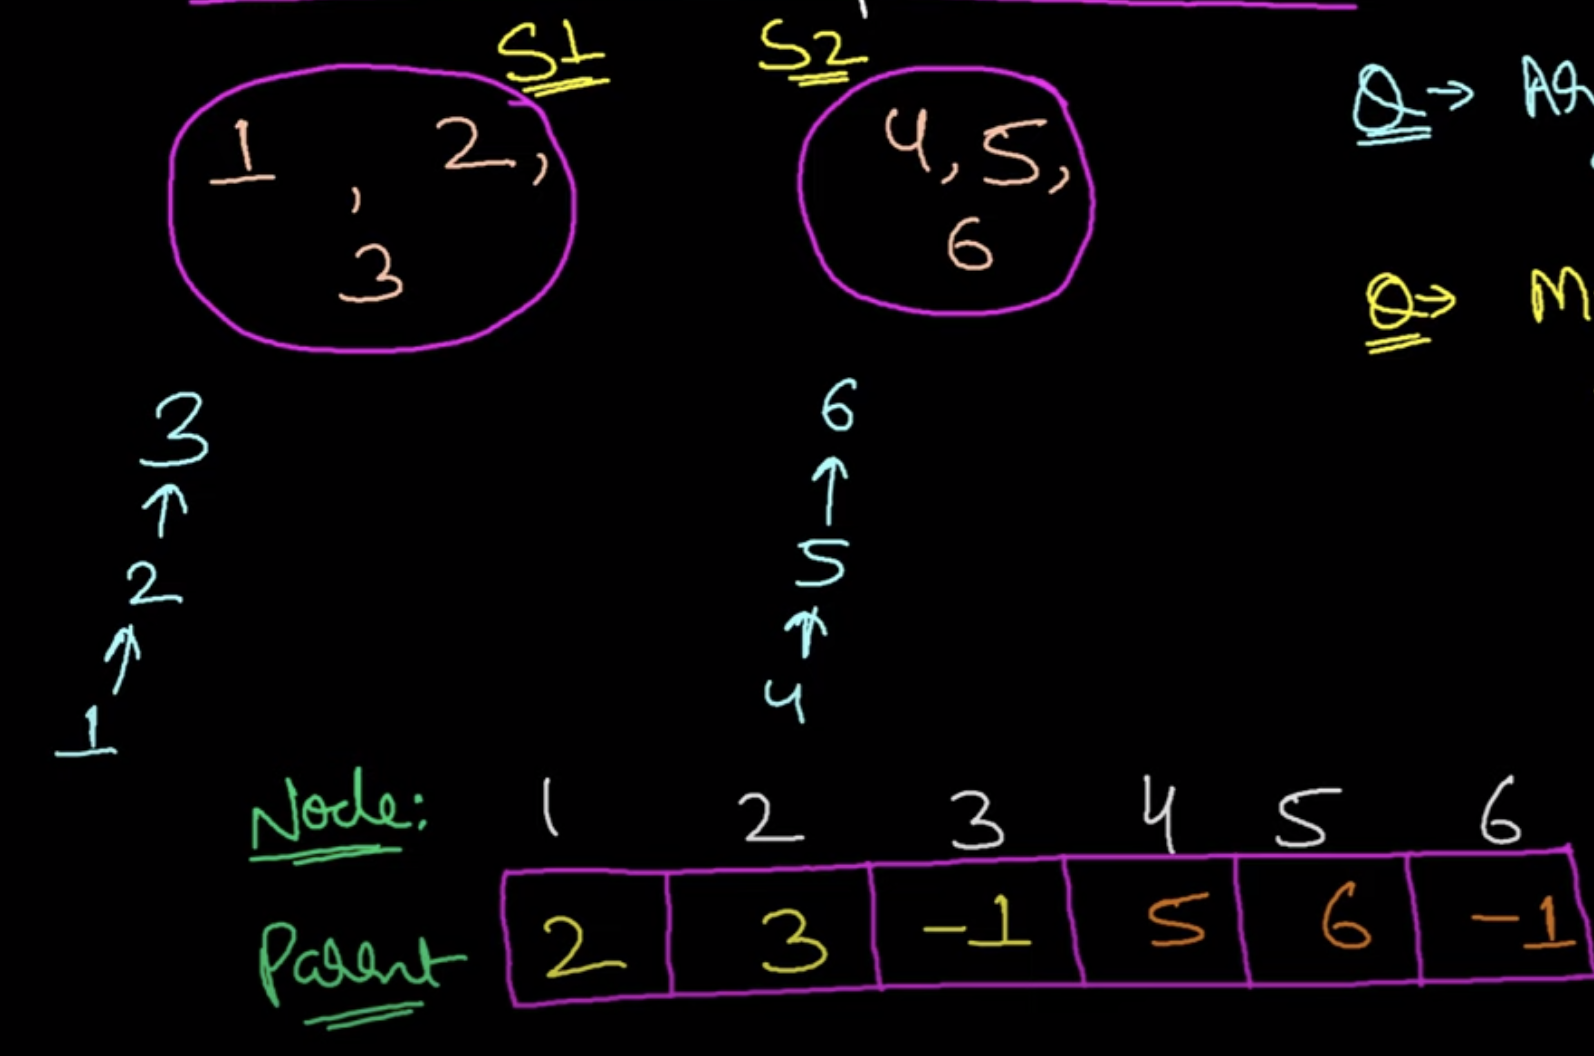 S1 S2
1 , 2,
3
4, 5,
6
Q →
Q → M
3
↑
2
↑
1
6
↑
5
↑
4
Node: 1 2 3 4 5 6
Parent 2 3 -1 5 6 -1